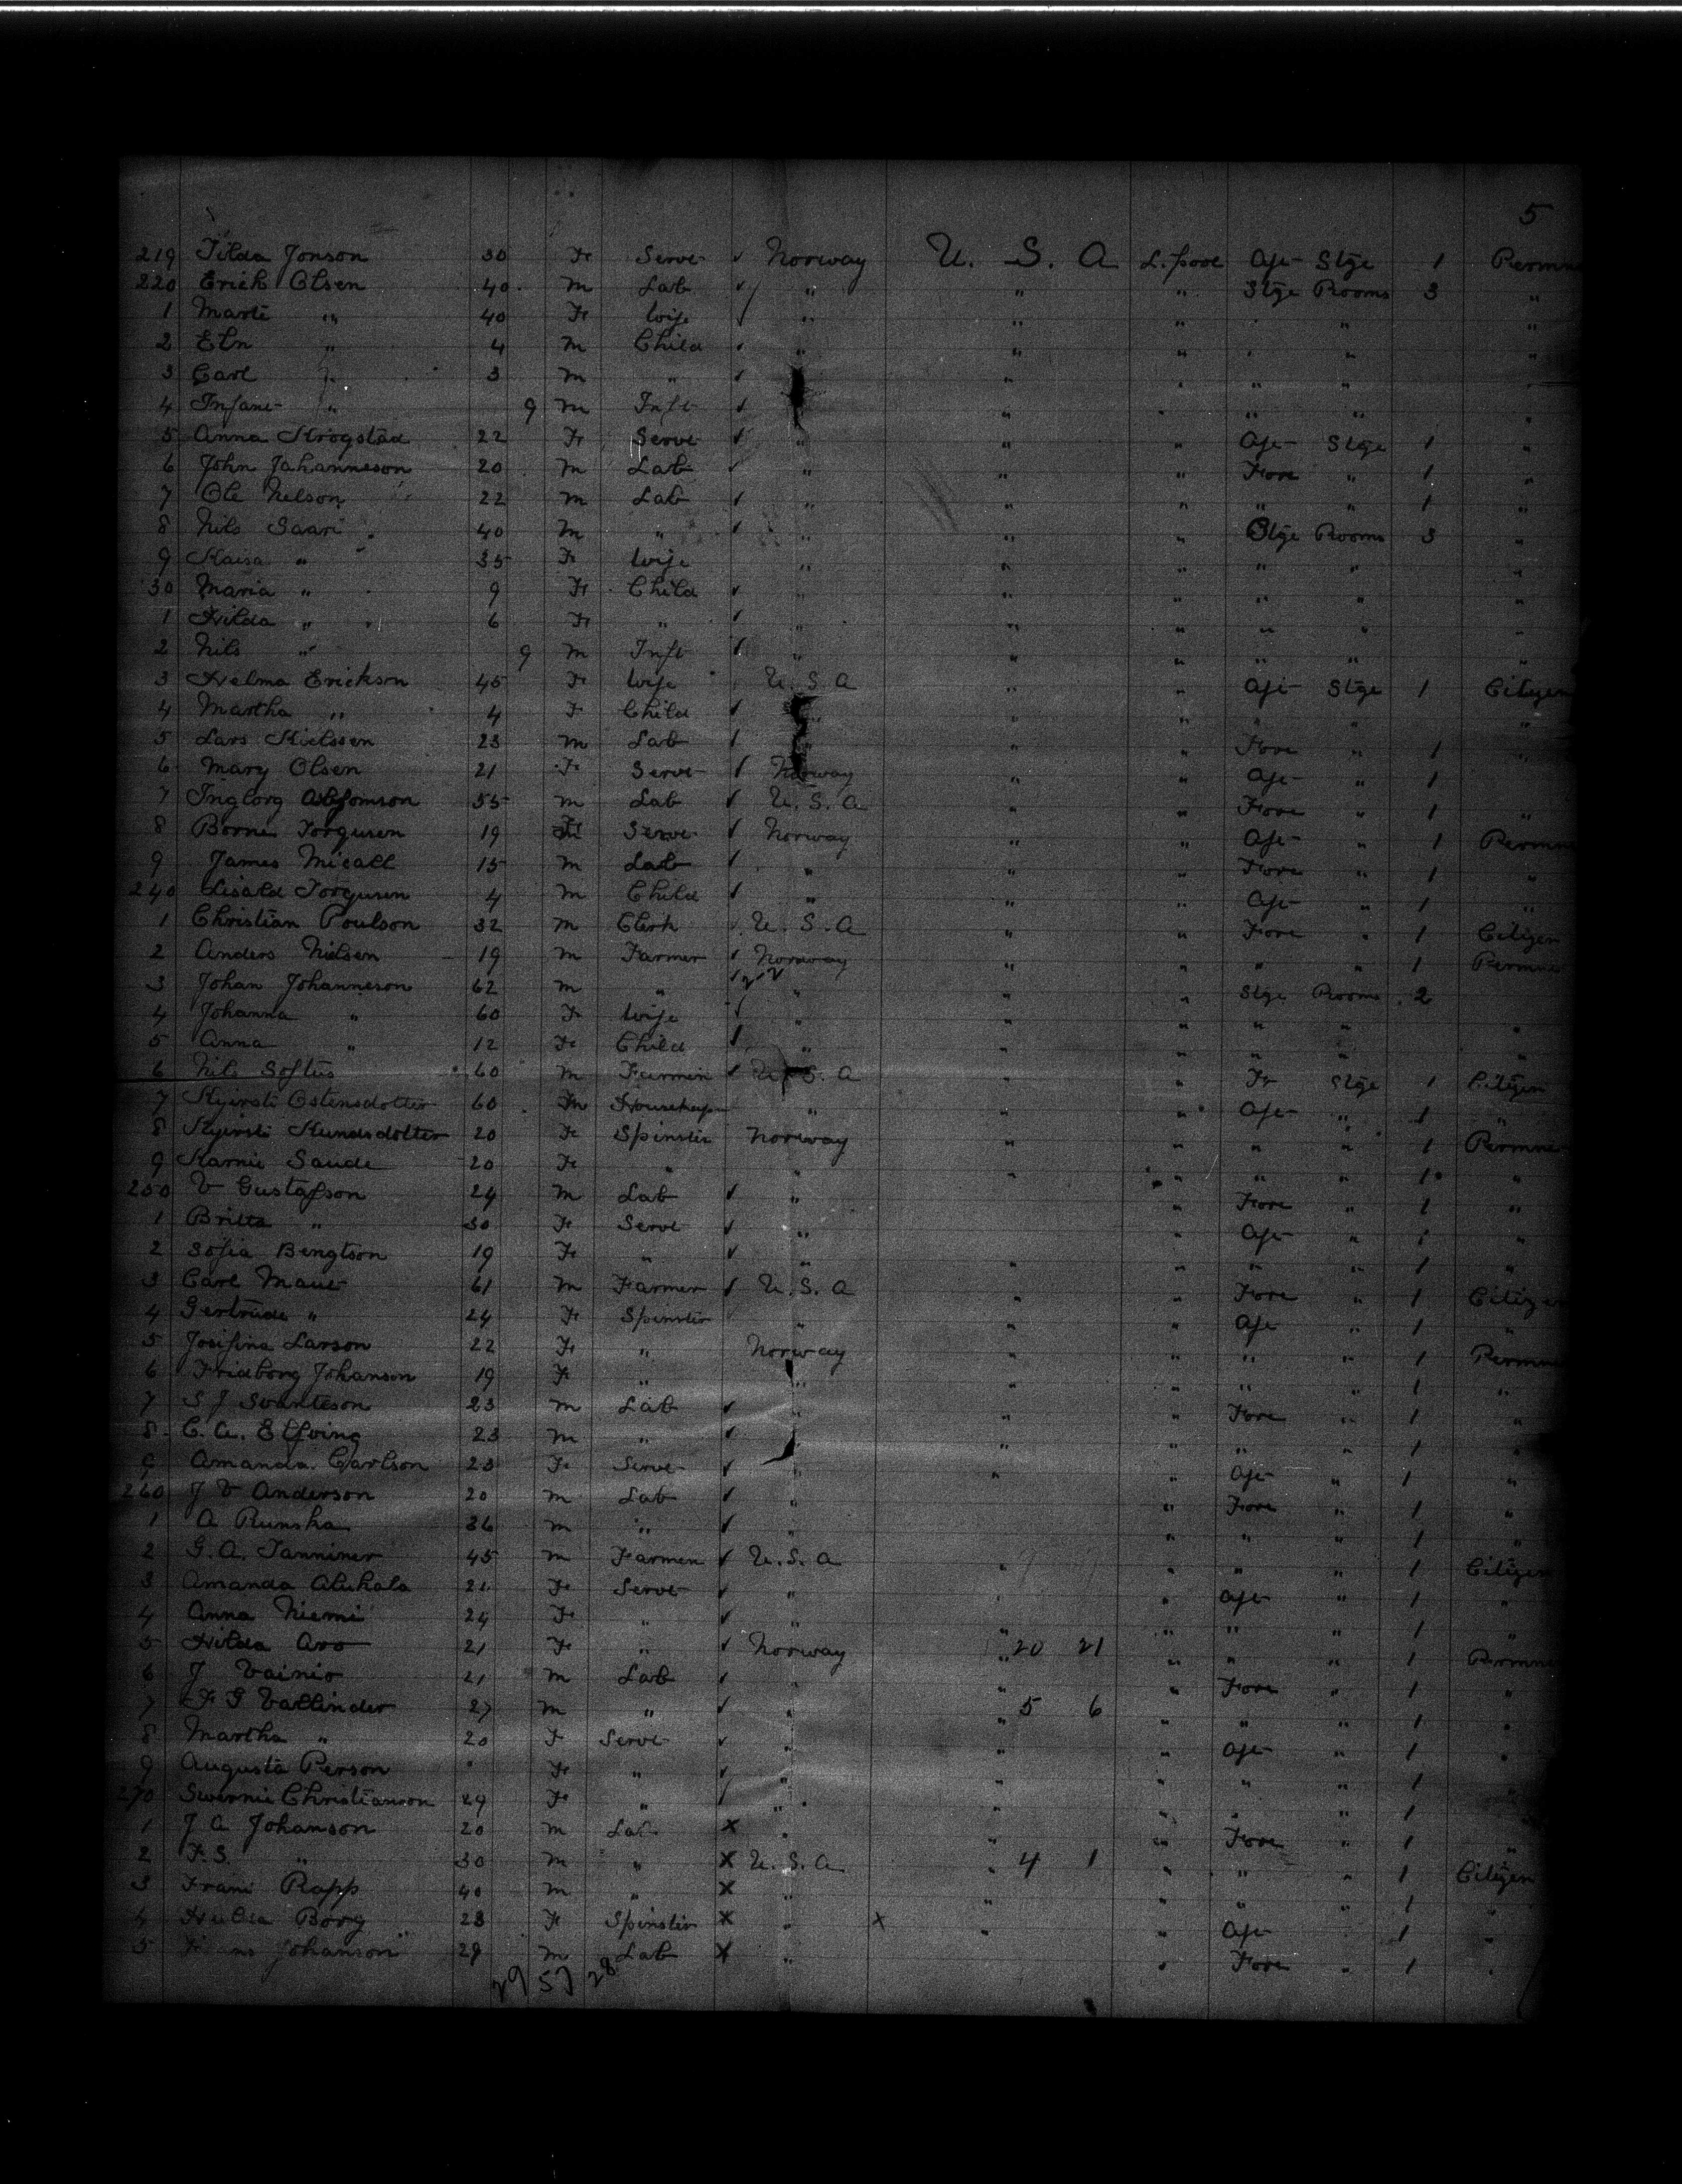 5
219 Tilda Jonson 30 Fe Servt ✓ Norway U. S. A L.pool Aft Stge 1 Permne
220 Erick Olsen 40 m Lab ✓ " " " Stge Rooms 3 "
1 Marte " 40 Fe Wife ✓ " " " " " "
2 " 4 m Child ✓ " " " " "
3 Carl " 3 m " ✓ " " " " " "
4 Infant " 9 m Inft ✓ " " " " " "
5 Anna Krogstad 22 Fe Servt ✓ " " " Aft Stge 1 "
6 John Johanneson 20 m Lab ✓ " " " Fore " 1 "
7 Ole Nelson 22 m Lab ✓ " " " " " 1 "
8 Nils Saari 40 m " ✓ " " " Stge Rooms 3 "
9 Kaisa " 35 Fe Wife " " " " " "
30 Maria " 9 Fe Child ✓ " " " " " "
1 Hilda " 6 Fe " ✓ " " " " " "
2 Nils " 9 m Inft ✓ " " " " " "
3 Helma Erickson 45 Fe Wife U. S. A " " Aft Stge 1 Citizen
4 Martha " 4 F Child ✓ " " " " " "
5 Lars 23 m Lab ✓ " " " Fore " 1 "
6 Mary Olsen 21 Fe Servt ✓ Norway " " Aft " 1
7 Ingborg 55 m Lab ✓ U. S. A " " Fore " 1 "
8 Borni Torgusen 19 Fe Servt ✓ Norway " " Aft " 1 Permne
9 James Micall 15 m Lab ✓ " " " Fore " 1 "
240 Torgusen 4 m Child ✓ " " " Aft " 1 "
1 Christian Poulson 32 m Clerk U. S. A " " Fore " 1 Citizen
2 Anders Nielsen 19 m Farmer ✓ Norway " " " " 1 Permne
3 Johan Johanneson 62 m " ✓ " " " Stge Rooms 2
4 Johanna " 60 Fe Wife ✓ " " " " " "
5 Anna " 12 Fe Child ✓ " " " " " "
6 Nils Softus 60 m Farmer ✓ U. S. A " Fr Stge 1 Citizen
7 Kjersti Ostensdotter 60 Fm " " " Aft " 1 "
8 Kjersti Kundsdotter 20 Fe Spinster Norway " " " " 1 Permne
9 Karnie Saude 20 Fe " " " " " " 1 "
250 V Gustafson 24 m Lab ✓ " " Fore " 1 "
1 Britta " 30 Fe Servt ✓ " " Aft " 1 "
2 Sofia Bengtson 19 Fe " ✓ " " " " " 1 "
3 Carl 61 m Farmer ✓ U. S. A " " Fore " 1 Citizen
4 Gertrude " 24 Fe Spinster " " " Aft " 1 "
5 Josifina Larson 22 Fe " Norway " " " " 1 Permne
6 Fridborg Johanson 19 Fe " " " " " " 1 "
7 S J Svanteson 23 m Lab ✓ " " " Fore " 1 "
8 C. A. Elfving 23 m " ✓ " " " " " 1 "
9 Amanda Carlson 23 Fe Servt ✓ " " " Aft " 1 "
260 J V Anderson 20 m Lab ✓ " " Fore " 1 "
1 A Runska 36 m " ✓ " " " " 1 "
2 G. A. Tanniner 45 m Farmer ✓ U. S. A " " " " 1 Citizen
3 Amanda Alukala Fe Servt ✓ " " " Aft " 1 "
4 Anna Niemi 24 Fe " ✓ " " " " " 1 "
5 Hilda Aro 21 Fe " ✓ Norway " 20 21 " " " 1 Permne
6 J Vainio 21 m Lab ✓ " " " Fore " 1 "
7 F G Vallinder 27 m " ✓ " " 5 6 " " " 1 "
8 Martha " 20 F Servt ✓ " " " Aft " 1 "
9 Augusta Person " Fe " ✓ " " " " " 1 "
270 Christianson 29 Fe " ✓ " " " " " 1
1 J A Johanson 20 m Lab X " " " Fore " 1 "
2 F. S. " 30 m " X U. S. A " 4 1 " " " 1 Citizen
3 Rapp 40 m " X " " " " " 1 "
4 Borg 28 Fe Spinster X " X " " Aft 1 "
5 Johanson 29 m Lab X " " Fore " 1 "
29 57 28